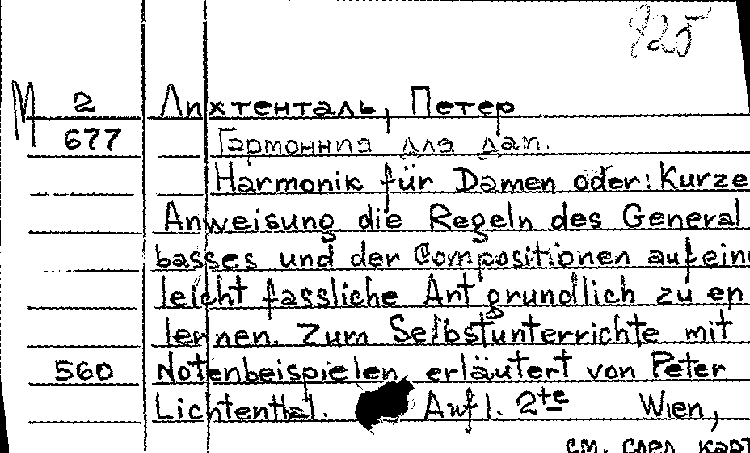 925
М 2 Лихтенталь, Петер
677 Гармониия для дам.
Harmonik für Damen oder: Kurze
Anweisung die Regeln des General
basses und der Compositionen auf eine
leicht fassliche Art grundlich zu er
lernen. Zum Selbstunterrichte mit
560 Notenbeispielen erläutert von Peter
Lichtenthal. Aufl. 2te Wien,
см. след. карт